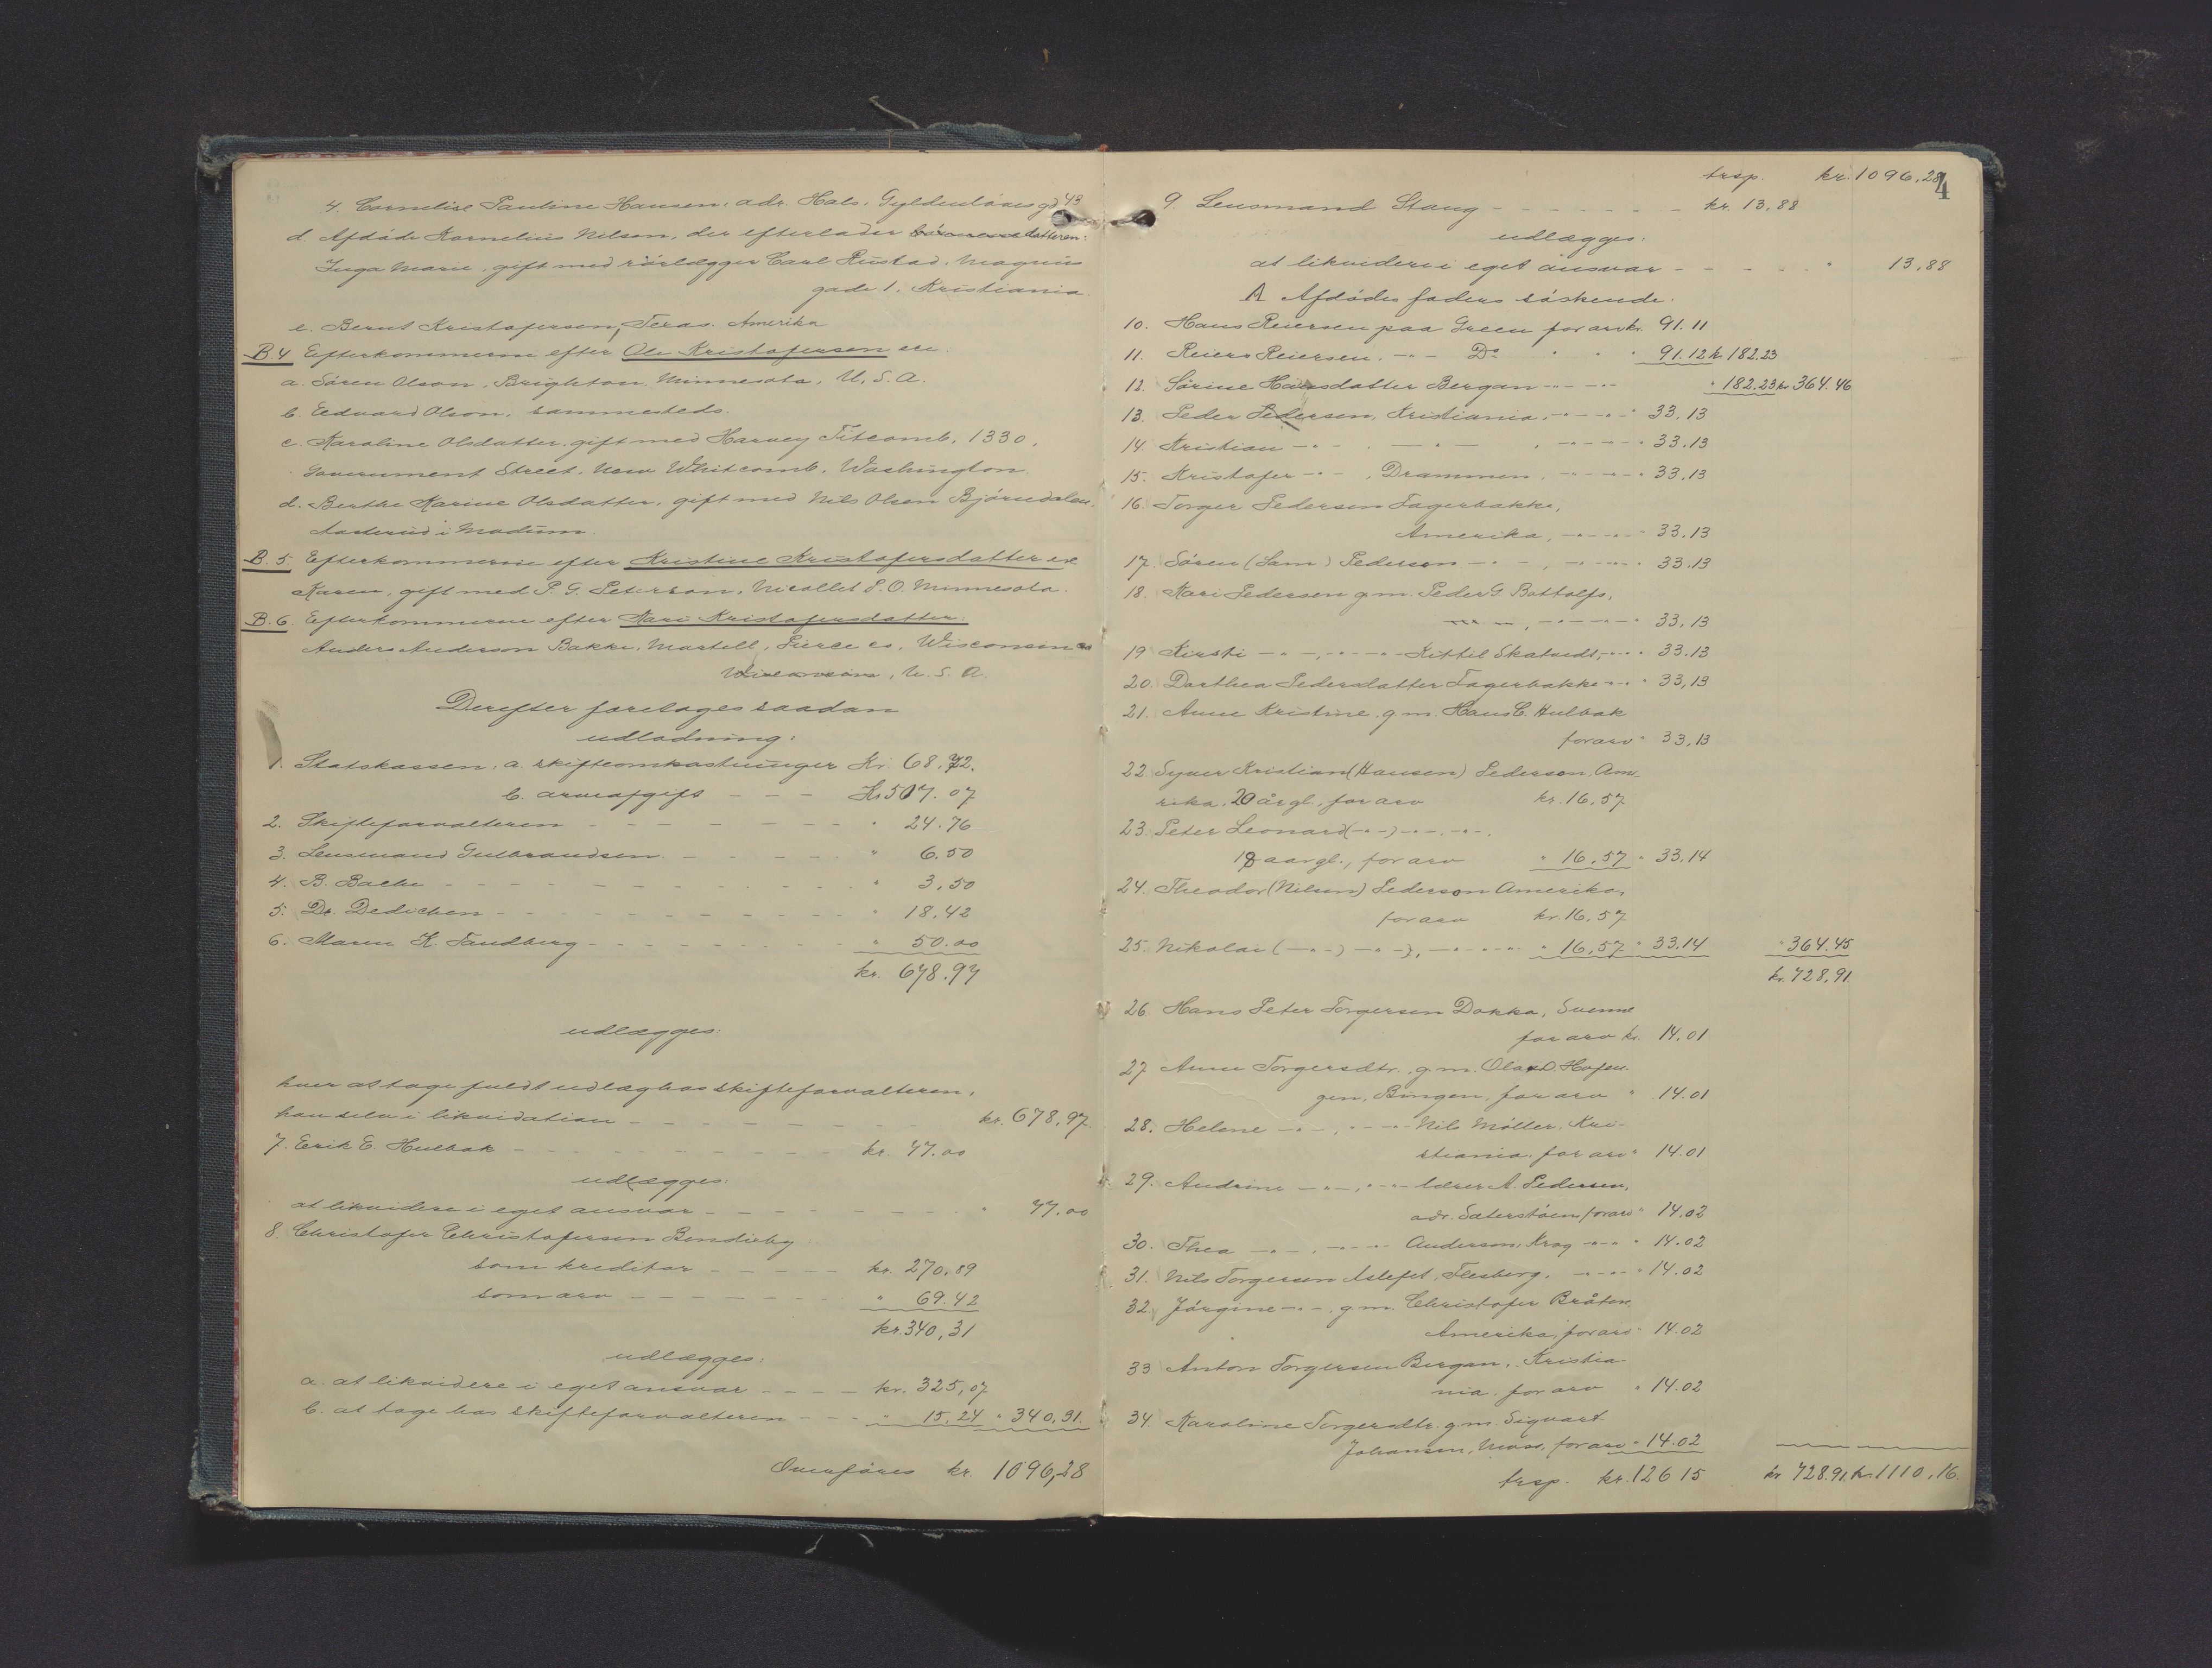 4. Cornelise Pauline Hansen, adr. Hals. Gyldenløves gd 43
d. Afdøde Kornelius Nilsen, der efterlader datteren:
Inga Marie, gift med rørlægger Carl Rustad, Magnus
gade 1. Kristiania.
e. Bernt Kristofersen, Texas. Amerika
B.4 Efterkommerne efter Ole Kristofersen ere.
a. Søren Olson, Brighton, Minnesota, U.S.A.
b. Eedvard Olson, sammesteds.
c. Karoline Olsdatter, gift med Harvey Titcomb, 1330,
Government Street, New Whitcomb, Washington.
d. Berthe Karine Olsdatter, gift med Nils Olsen Bjørndalen,
Aasterud i Modum.
B.5 Efterkommerne efter Kristine Kristofersdatter ere
Karen, gift med P. G. Peterson, Nicollet P.O. Minnesota.
B.6. Efterkommerne efter Kari Kristofersdatter.
Anders Anderson Bakke, Martell, Pierce co, Wisconsin
Wisconsin, U.S.A.
Derefter foretages saadan
udlodning:
1. Statskassen. a. skifteomkostninger Kr. 68.72.
b. arveafgift - - - Kr 507.07
2. Skifteforvalteren - - - " 24.76
3. Lensmand Gulbrandsen - - - " 6.50
4. B. Bache - - - " 3,50
5. Dr. Dedichen - - - " 18.42
6. Maren K. Sandberg - - - " 50.00
kr. 678.97
udlægges:
hver at tage fuldt udlæg hos skifteforvalteren,
han selv i likvidation - - - kr. 678,97
7. Erik E. Hulbak - - - kr. 77.00
udlægges:
at likvidere i eget ansvar - - - " 77.00
8. Christofer Christofersen Bendixby
som kreditor - - - kr. 270,89
som arv - - - " 69.42
kr. 340,31
udlægges:
a. at likvidere i eget ansvar - - - kr. 325,07
b. at tage hos skifteforvalteren - - - " 15,24 " 340,31.
Overføres kr. 1096,28
trsp. kr. 1096,28
4
9. Lensmand Staug - - - kr. 13,88
udlægges:
at likvidere i eget ansvar - - - " 13,88
A Afdødes faders søskende:
10. Hans Reiersen paa Green for arv kr. 91.11
11. Reiers Reiersen. -"- Do " " " 91.12 kr. 182.23
12. Sørine Hansdatter Bergan -"- -"- " 182.23 kr 364.46
13. Peder Pedersen, Kristiania, -"- -"- " 33.13
14. Kristian -"- . -"- , -"- -"- " 33.13
15. Kristofer -"- , Drammen, -"- -"- " 33.13
16. Torger Pedersen Fagerbakke,
Amerika, -"- -"- " 33.13
17. Søren (Sam) Pederson -"- , -"- " 33.13
18. Kari Pedersen g.m. Peder G. Bottolfs,
-"-, -"- -"- " 33,13
19. Kirsti -"-, -"- -"- Kittil Skatvedt, -"- " 33.13
20. Dorthea Pedersdatter Fagerbakke -"- " 33,13
21. Anne Kristine, g.m. Hans C. Hulbak
for arv " 33,13
22. Syver Kristian (Hansen) Pederson, Ame-
rika, 20 årgl., for arv kr. 16,57
23. Peter Leonard (-"-) -"-, -"-,
18 aargl., for arv " 16,57 " 33.14
24. Theodor (Nilsen) Pederson Amerika,
for arv kr. 16,57
25. Nikolai (-"-) -"-, -"- " 16,57 " 33.14 " 364.45
kr. 728,91.
26. Hans Peter Torgersen Dokka, Svenne
for arv kr. 14.01
27. Anne Torgersdtr., g.m. Olav D. Hafen-
gen, Bingen, for arv " 14.01
28. Helene -"-, -"- Nils Møller, Kri-
stiania, for arv " 14.01
29. Andrine -"-, -"- lærer A. Pedersen,
adr. Sæterstøen, for arv " 14.02
30. Thea -"-, -"- Anderson, Krog -"- " 14.02
31. Nils Torgersen Aslefet, Flesberg, -"- " 14.02
32. Jørgine -"-, g.m. Christofer Bråten
Amerika, for arv " 14.02
33. Anton Torgersen Bergan, Kristia-
nia, for arv " 14.02
34. Karoline Torgersdtr. g.m. Sigvart
Johansen, Moss, for arv " 14.02
trsp. kr. 126 15 kr 728.91. kr. 1110,16.